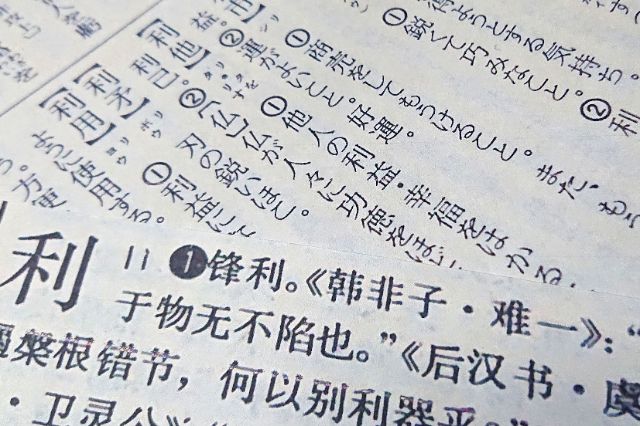 得ようとする気持ち。
①鋭くて巧みなこと。②利
①商売をしてもうけること。また、もう
益。②運がよいこと。好運。
【利他】 ①他人の利益・幸福をはかる
②〔仏〕仏が人々に功徳をほど
【利矛】 刃の鋭いほこ。
【利用】 ①利益に
ように使用する。
方便
利 ❶锋利。《韩非子·难一》：“
于物无不陷也。”《后汉书·虞
槃根错节，何以别利器乎？”
·卫灵公》：“